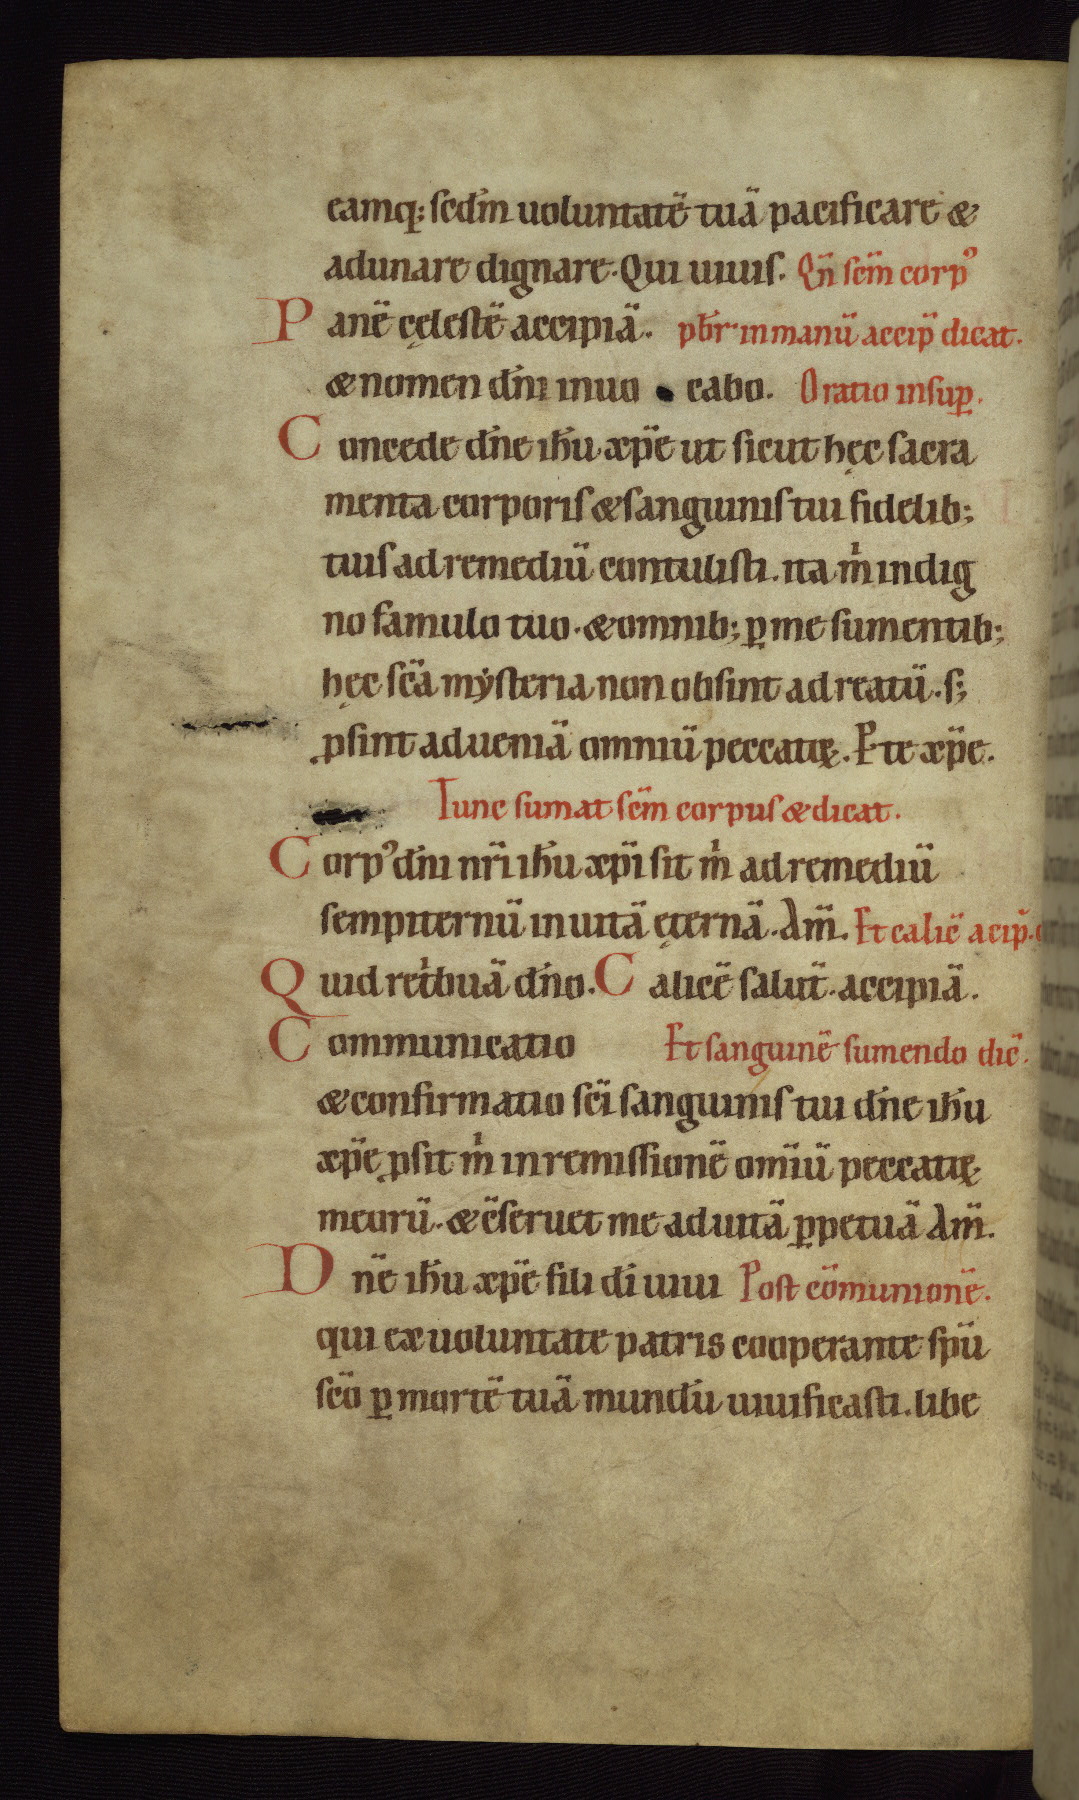 eamq; scdm̄ uoluntatē tuā pacificare &
adunare dignare. Qui uiuis. Qn̄ scm̄ corpꝰ
Panē cęlestē accipiā. pbr̄ in manū accip̄ dicat.
& nomen dn̄i inuo cabo. Oratio insuꝑ.
Concede dn̄e ih̄u xp̄e ut sicut hęc sacra
menta corporis & sanguinis tui fidelib;
tuis ad remediū contulisti. ita m̄ indig
no famulo tuo. & omnib; ꝑ me sumentib;
hęc sc̄a mẏsteria non obsint ad reatū. s;
ꝓsint ad ueniā omniū peccatoꝝ. P te xp̄e.
Tunc sumat scm̄ corpus & dicat.
Corpꝰ dn̄i nr̄i ih̄u xp̄i sit m̄ ad remediū
sempiternū in uitā ęternā. Am̄. Et calic̄ acip̄.
Quid retͥbuā dn̄o. Calicē salut̄. accipiā.
Communicatio Et sanguinē sumendo dic̄.
& confirmatio sc̄i sanguinis tui dn̄e ih̄u
xp̄e ꝓsit m̄ in remissionē om̄iū peccatoꝝ
meorū. & c̄seruet me ad uitā ꝑpetuā Am̄.
Dn̄e ih̄u xp̄e fili dī uiui Post cōmunionē.
qui ex uoluntate patris cooperante sp̄u
sc̄o ꝑ mortē tuā mundū uiuificasti. libe